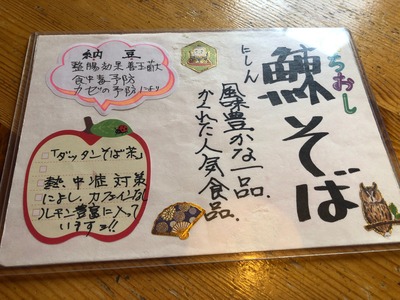 いちおし
鰊そば
にしん
風味豊かな一品.
かくれた人気食品.
納豆
整腸効果善玉菌大
食中毒予防
カゼの予防に
「ダッタンそば茶」
熱中症対策
によし、カフェインなし
ルチン豊富に入って
います!!